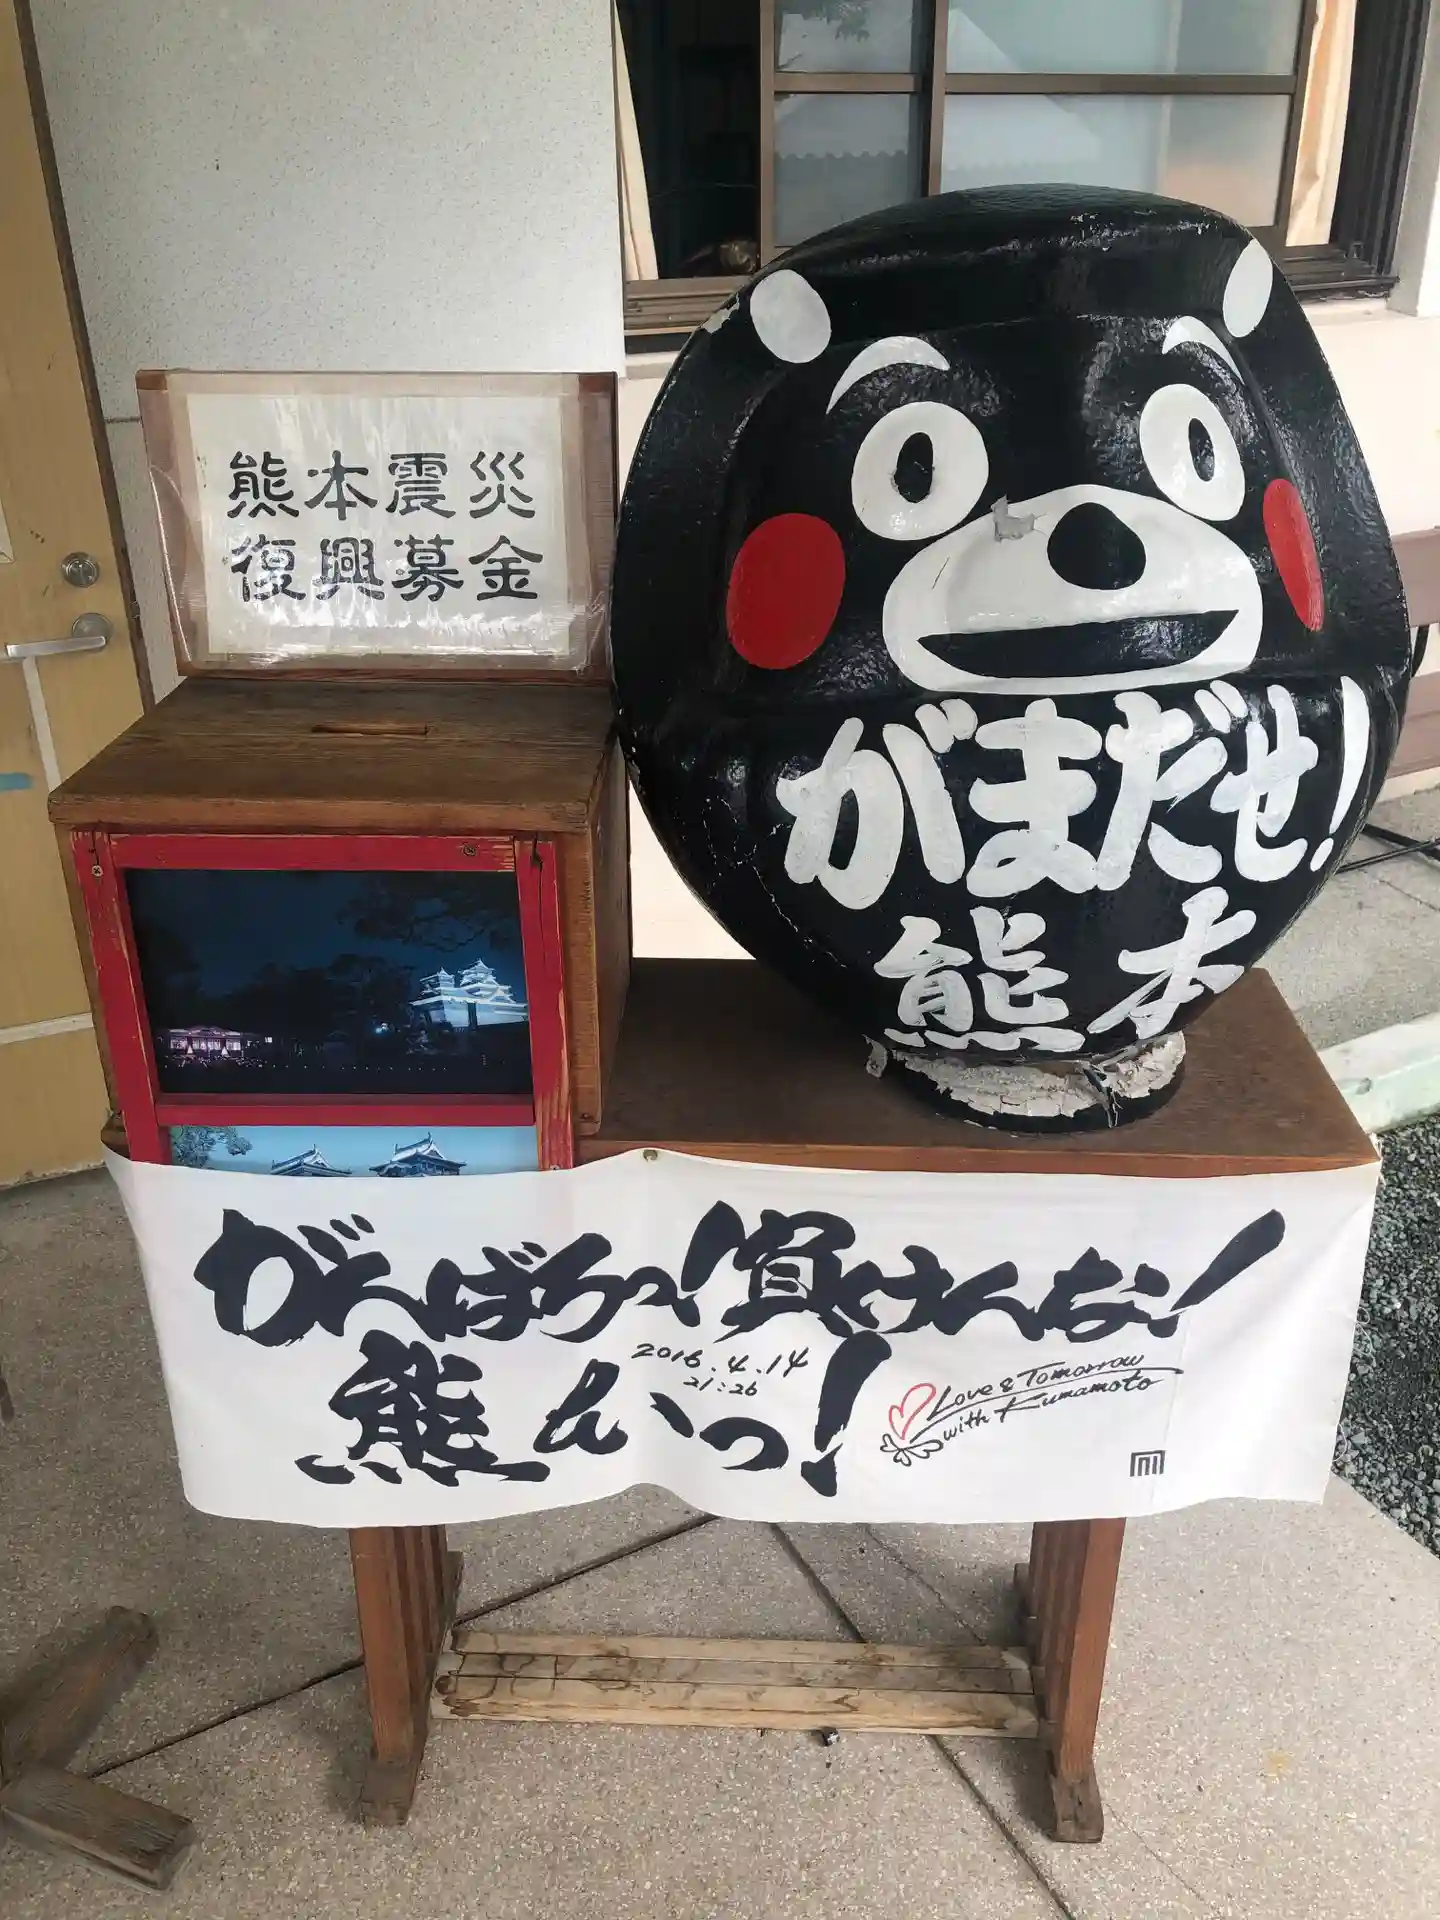 熊本震災
復興募金
がまだせ!
熊本
がんばろっ!負けんな!
熊んいっ!
2016.4.14
21:26
Love & Tomorrow
with Kumamoto